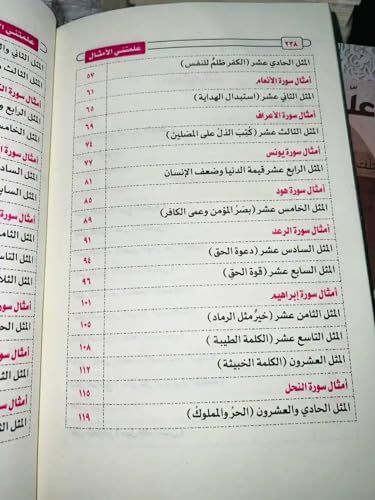 علمتني الأمثال ٢٣٨
المثل الحادي عشر (الكفر ظلمٌ للنفس) ٥٧
أمثال سورة الأنعام ٦١
المثل الثاني عشر (استبدال الهداية) ٦٥
أمثال سورة الأعراف ٦٩
المثل الثالث عشر (كُتِبَ الذلّ على المضلين) ٧٤
أمثال سورة يونس ٧٧
المثل الرابع عشر قيمة الدنيا وضعف الإنسان ٨١
أمثال سورة هود ٨٥
المثل الخامس عشر (بصَرُ المؤمن وعمى الكافر) ٨٩
أمثال سورة الرعد ٩١
المثل السادس عشر (دعوة الحق) ٩٤
المثل السابع عشر (قوة الحق) ٩٦
أمثال سورة إبراهيم ١٠١
المثل الثامن عشر (خيرٌ مثل الرماد) ١٠٥
المثل التاسع عشر (الكلمة الطيبة) ١٠٨
المثل العشرون (الكلمة الخبيثة) ١١٢
أمثال سورة النحل ١١٥
المثل الحادي والعشرون (الحرُّ والمملوكُ) ١١٩
المثل الثاني و
المثل الثالث
أمثال سورة
المثل الرابع
المثل الخامس
أمثال سورة
المثل السادس
المثل السابع
أمثال سورة
المثل الثامن
المثل التاسع
المثل الثلا
أمثال سورة
المثل الح
أمثال س
المثل ال
أمثال س
المثل